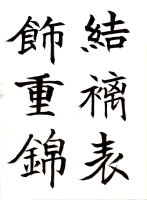 結褵表
飾重錦